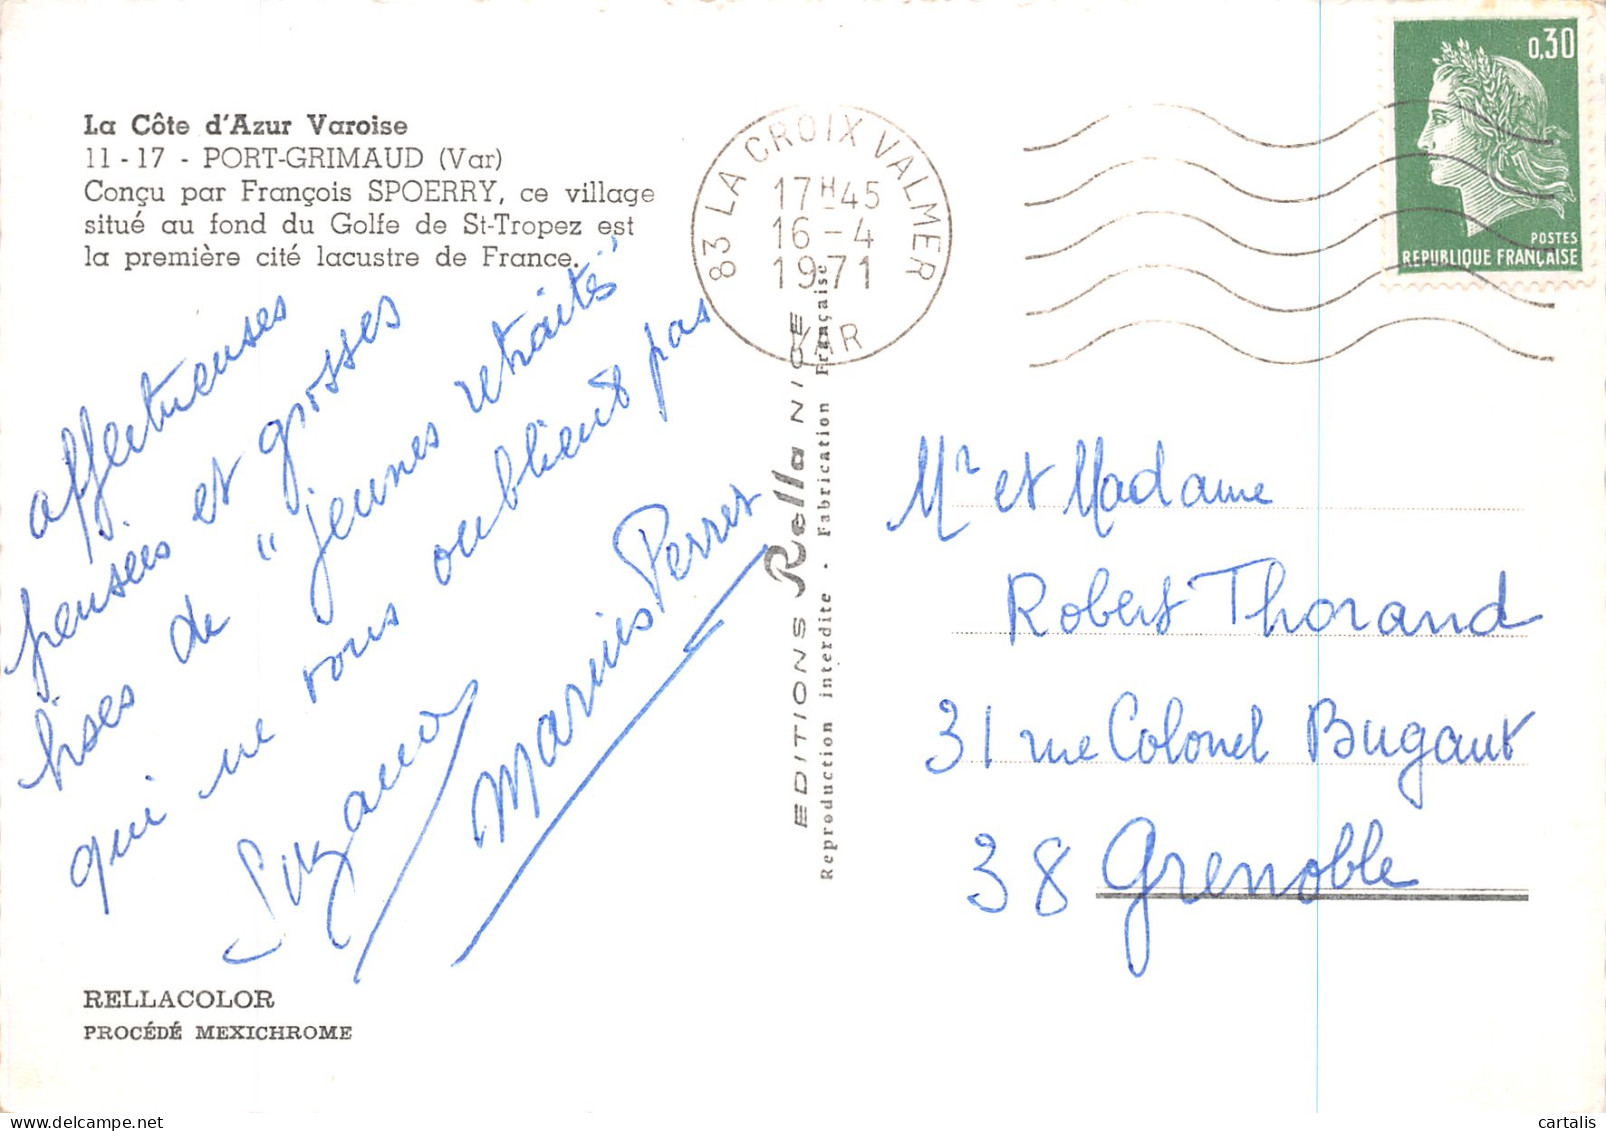 La Côte d'Azur Varoise
11 - 17 - PORT-GRIMAUD (Var)
Conçu par François SPOERRY, ce village
situé au fond du Golfe de St-Tropez est
la première cité lacustre de France.
affectueuses
pensées et grosses
bises de "jeunes retraités"
qui ne vous oublient pas
Suzanne
Marius Perret
RELLACOLOR
PROCÉDÉ MEXICHROME
EDITIONS Rella NICE
Reproduction interdite - Fabrication Française
83 LA CROIX VALMER
17H45
16 - 4
1971
VAR
0,30
POSTES
REPUBLIQUE FRANÇAISE
Mr et Madame
Robert Thorand
31 rue Colonel Bugaut
38 Grenoble
cartalis
delcampe.net